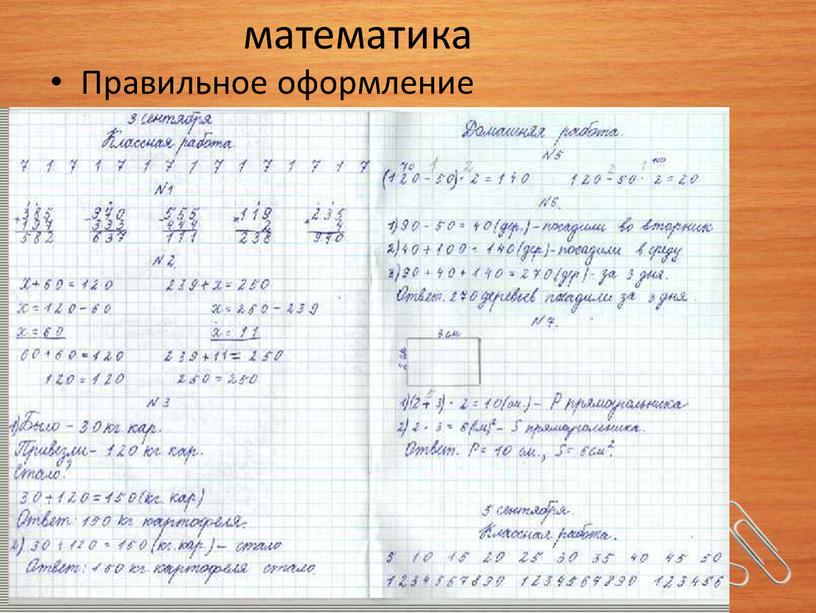 математика
• Правильное оформление
3 сентября
Классная работа
7 1 7 1 7 1 7 1 7 1 7 1 7 1 7
N1
+385 -970 -555 ×119 ×235
197 333 444 2 4
582 637 111 238 940
N2.
x+60=120 239+x=250
x=120-60 x=250-239
x=60 x=11
60+60=120 239+11=250
120=120 250=250
N3
1) Было - 30 кг кар.
Привезли - 120 кг кар.
Стало?
30+120=150 (кг. кар)
Ответ: 150 кг картофеля.
2) 30+120=150 (кг. кар.) - стало
Ответ: 150 кг. картофеля стало.
Домашняя работа.
N5
70 1 2 2 1 100
(120-50)·2=140 120-50·2=20
N6.
1) 90-50=40 (дер.) - посадили во вторник
2) 40+100=140 (дер) - посадили в среду
3) 90+40+140=270 (дер) - за 3 дня.
Ответ. 270 деревьев посадили за 3 дня.
N7.
3 см
2 см
5
1) (2+3)·2=10 (см.) - P прямоугольника
2) 2·3=6 (см)² - S прямоугольника.
Ответ. P=10 см., S=6 см².
5 сентября.
Классная работа.
5 10 15 20 25 30 35 40 45 50
1234567890 1234567890 123456